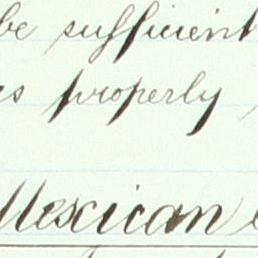 be sufficient
properly
Mexican